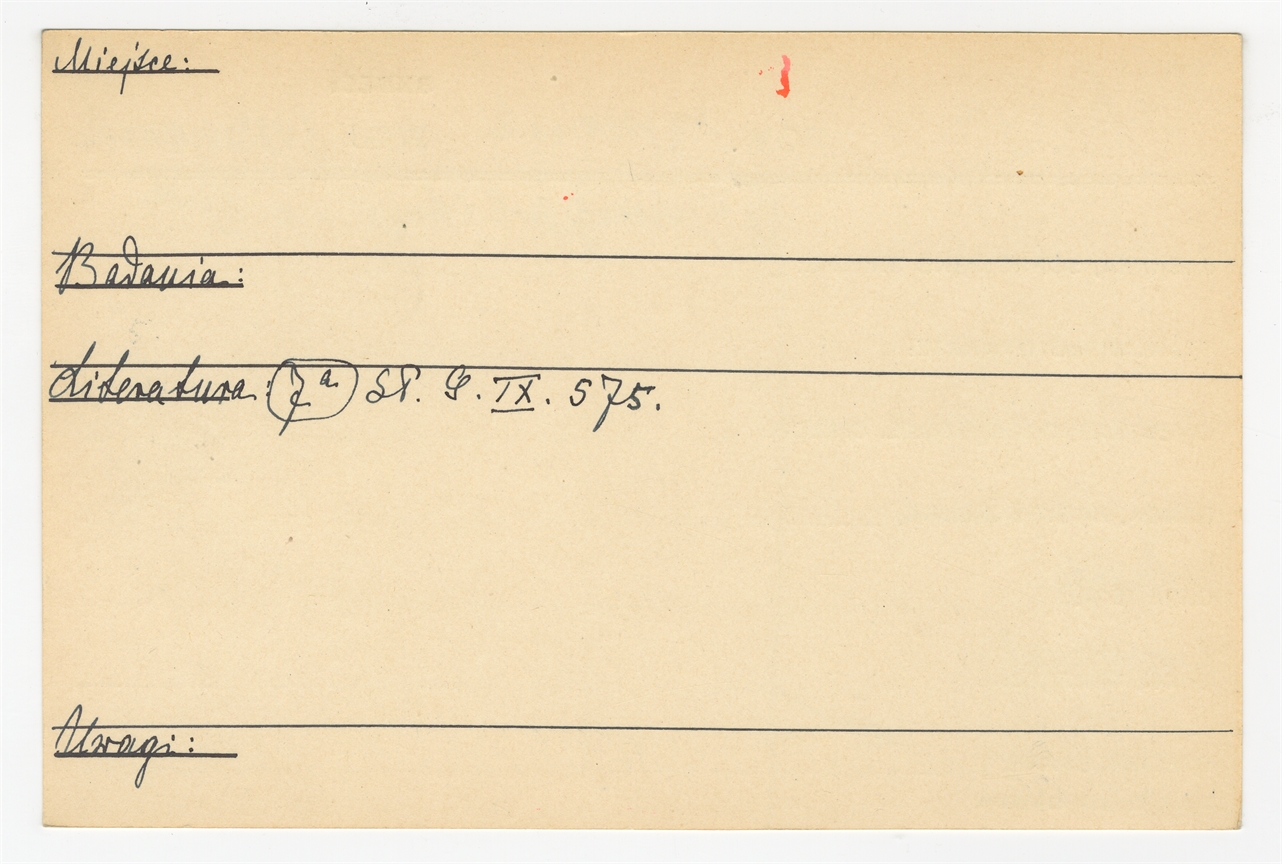 Miejsce:
Badania:
Literatura: 7a. St. G. IX. 575.
Uwagi: